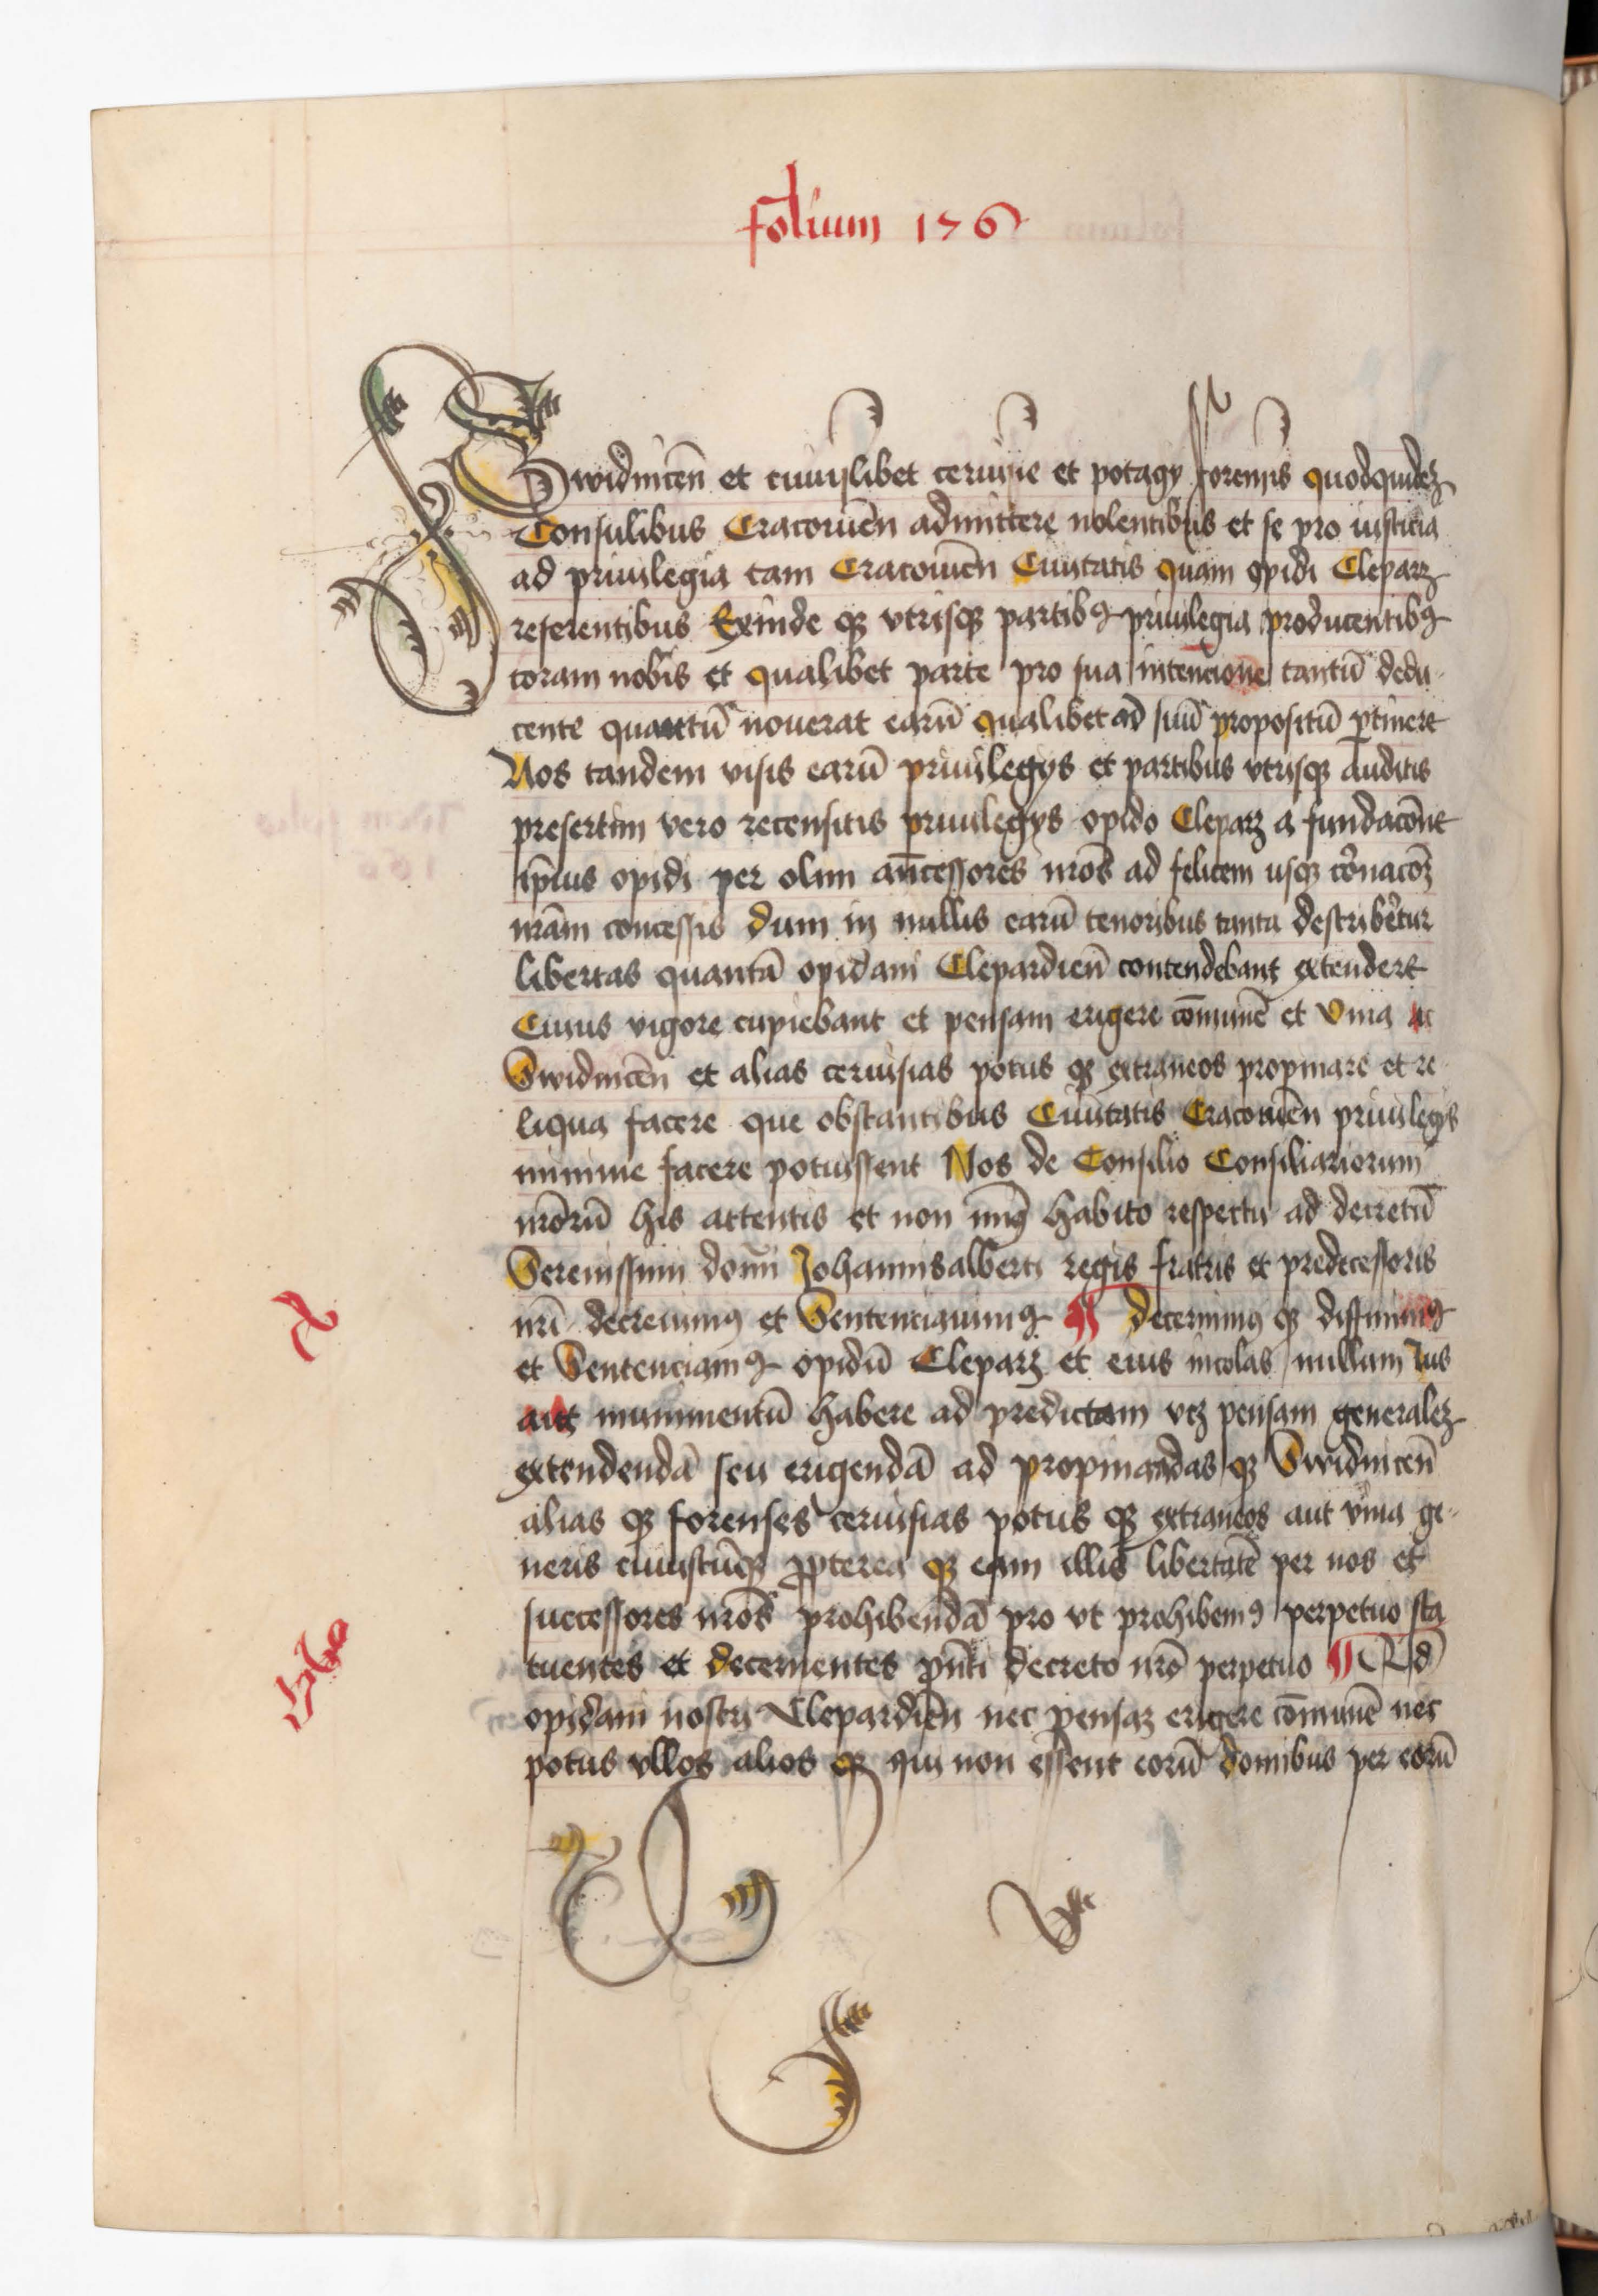 folium 156
Swidnicen̄ et cuiuslibet ceruisie et potagy forensis quodquidez
Consulibus Cracouien̄ admittere nolentibus et se pro iusticia
ad priuilegia tam Cracouien̄ Ciuitatis quam opidi Cleparz
referentibus Exinde qꝫ vtrisqꝫ partibꝯ priuilegia producentibꝯ
coram nobis et qualibet parte pro sua intencione tantū dedu
cente quantū nouerat earū qualibet ad suū propositū ꝑtinere
Nos tandem visis earū priuilegys et partibus vtrisqꝫ auditis
presertim vero recensitis priuilegys opido Cleparz a fundacōne
ip̄ius opidi per olim an̄cessores nr̄os ad felicem usqꝫ corōnacōꝫ
nr̄am concessis dum in nullis earū tenoribus tanta describer̄tur
libertas quantā opidani Clepardien̄ contendebant extendere
Cuius vigore cupiebant et pensam erigere cōmunē et vina ac
Swidnicen̄ et alias ceruisias potus qꝫ extraneos propinare et re
liqua facere que obstantibus Ciuitatis Cracouien̄ priuilegys
minime facere potuissent Nos de Consilio Consiliariorum
nr̄orū his attentis et non minꝯ habito respectu ad decretū
Serenissimi domī Johannisalberti regis fratris et predecessoris
nr̄i decreuimꝯ et Sentenciauimꝯ ¶ decernimꝯ qꝫ diffinimꝯ
et Sentenciamꝯ opidū Cleparz et eius incolas nullum Ius
aut munimentū habere ad predictam vcz pensam generalez
extendendā seu erigendā ad propinandas qꝫ Swidnicen̄
alias qꝫ forenses ceruisias potus qꝫ extraneos aut vina ge
neris cuiuscūqꝫ ꝓpterea qꝫ eam illis libertatē per nos et
successores nr̄os prohibendā pro vt prohibemꝯ perpetuo sta
tuentes et decernentes pn̄ti decreto nr̄o perpetuo ¶ Qd
opidani nostri Clepardien̄ nec pensaꝫ erigere cōmunē nec
potus vllos alios qꝫ qui non essent eorū domibus per eorū